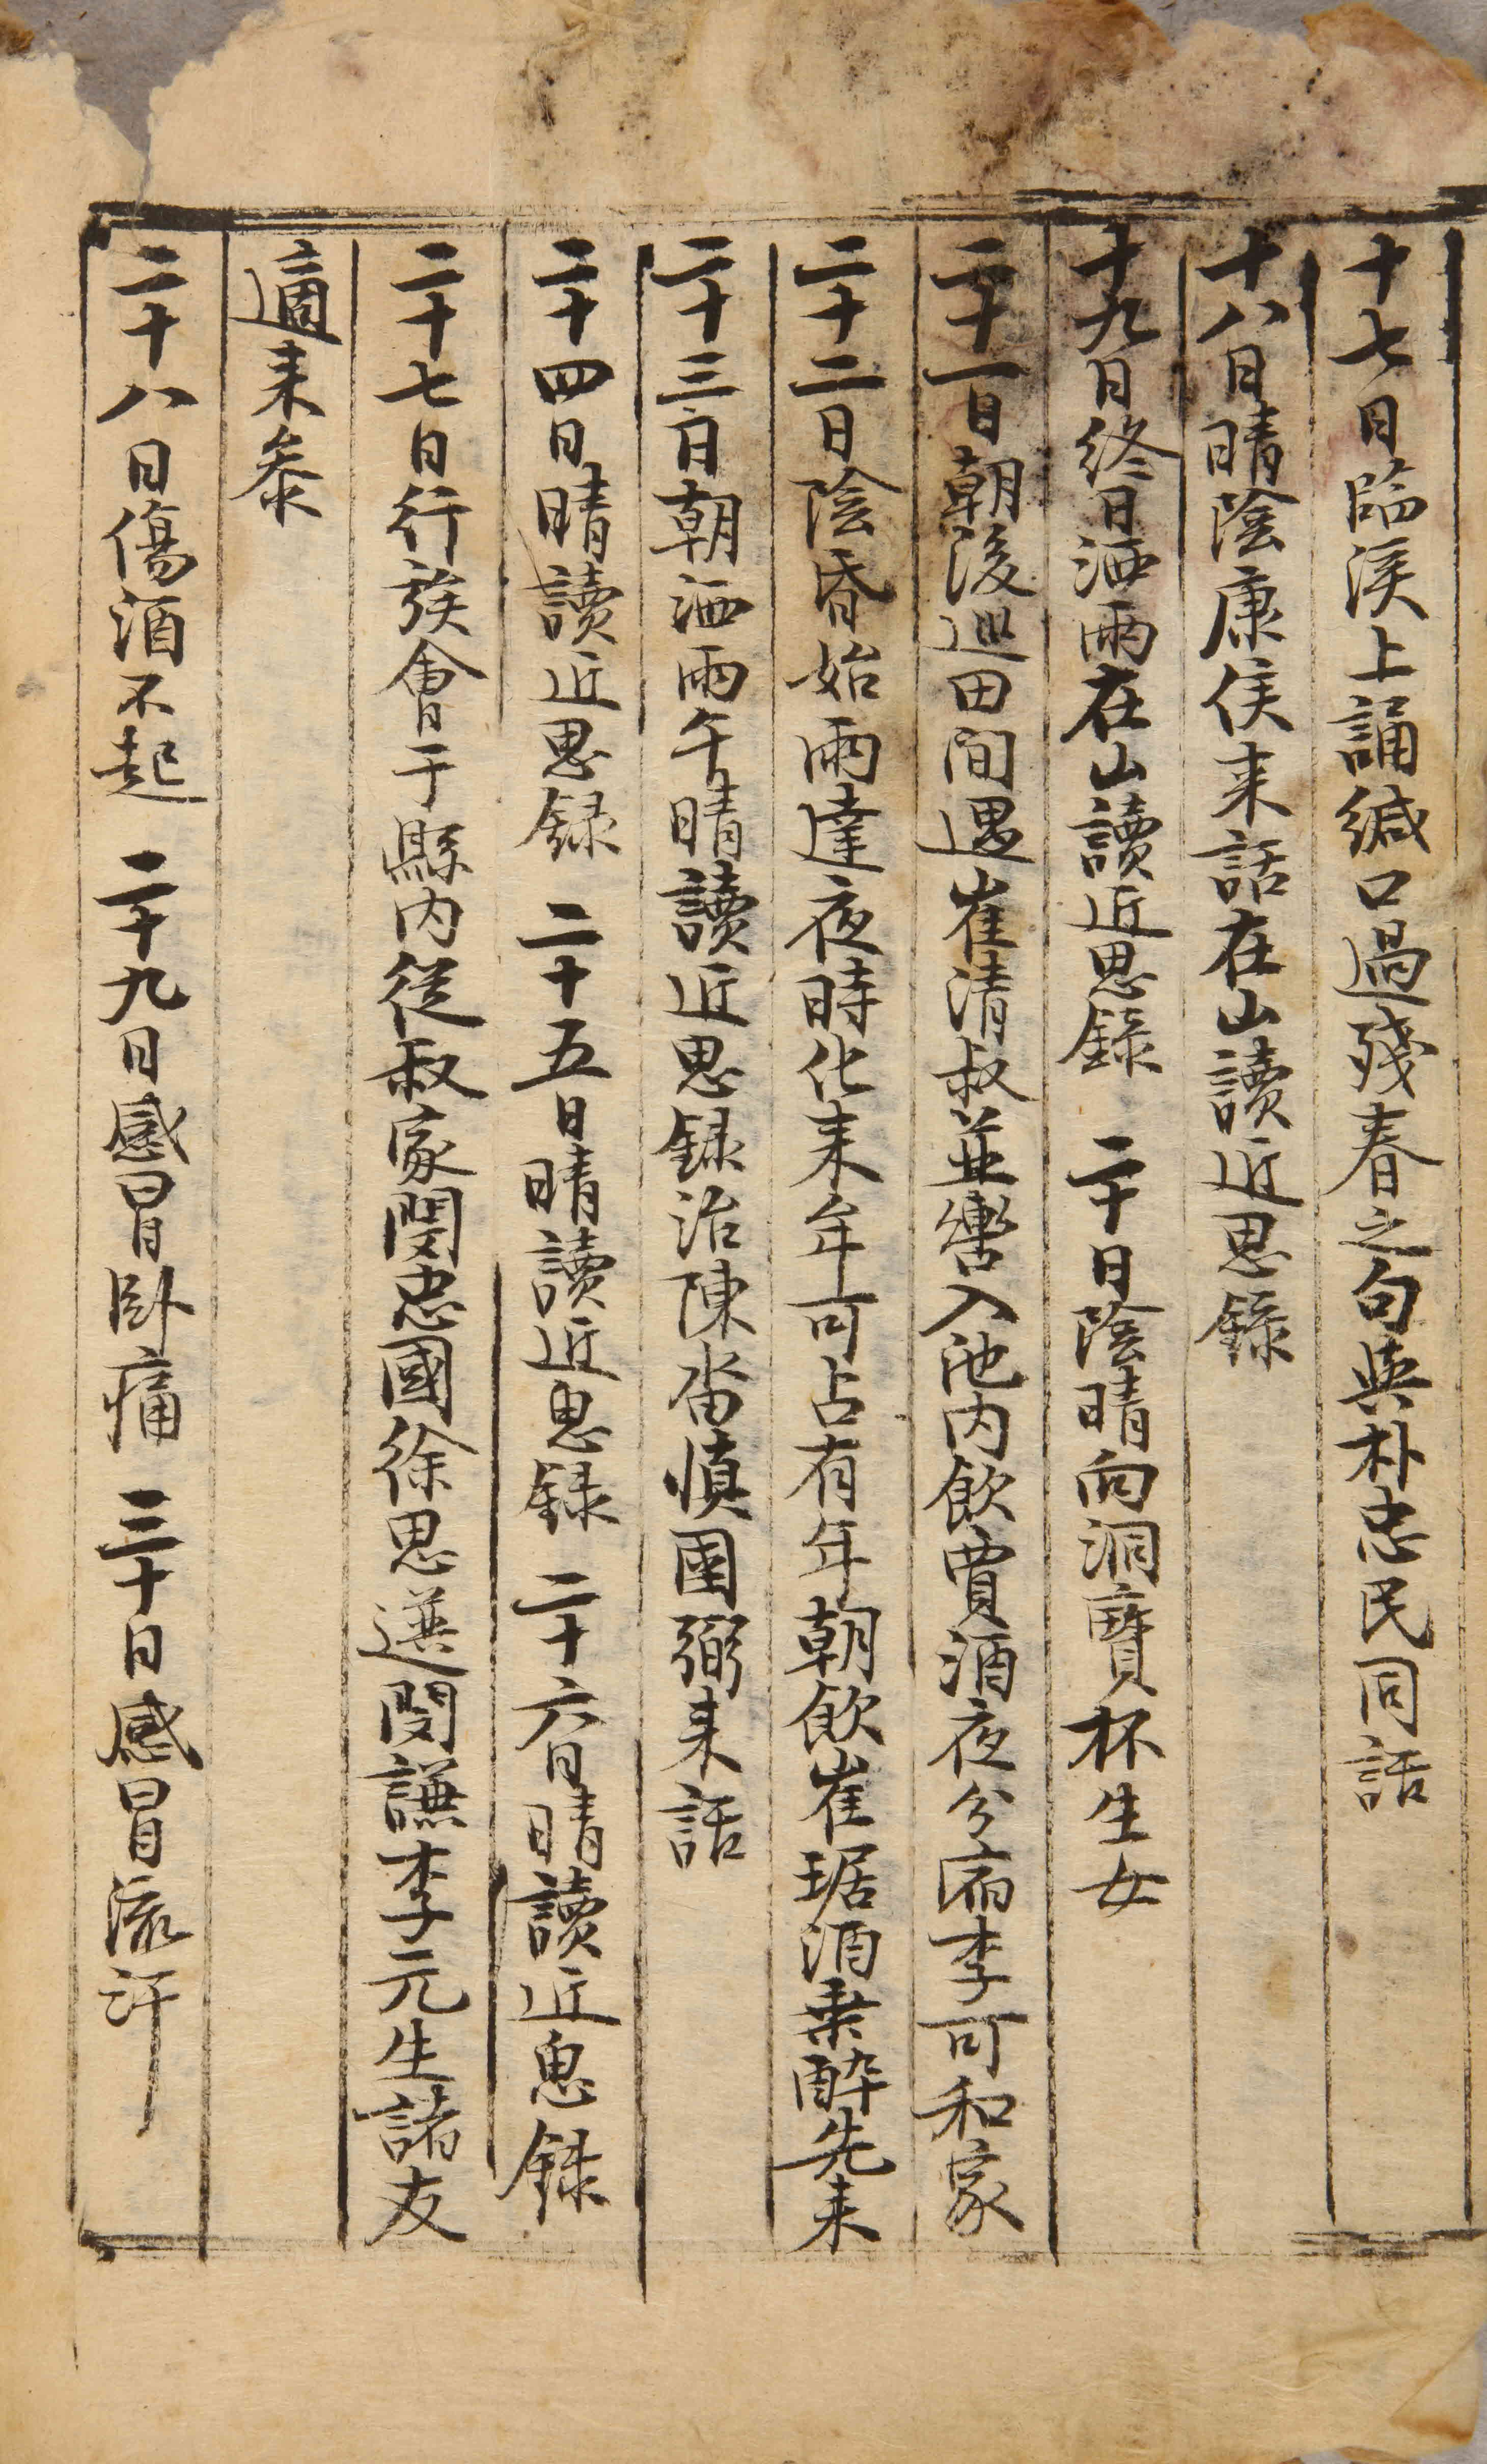 十七日臨溪上誦緘口過殘春之句與朴忠民同話
十八日晴陰康侯来話在山讀近思錄
十九日終日洒雨在山讀近思錄 二十日陰晴向洞寶杯生女
二十一日朝後巡田间遇崔清叔並轡入池内飲賣酒夜分宿李可和家
二十二日陰昏始雨達夜時化来牟可占有年朝飲崔琚酒乗醉先来
二十三日朝洒雨午晴讀近思録治陳畓慎國弼来話
二十四日晴讀近思録 二十五日晴讀近思録 二十六日晴讀近思録
二十七日行族會于縣内從叔家閔忠國徐思選閔謙李元生諸友
適来叅
二十八日傷酒不起 二十九日感冒卧痛 三十日感冒流汗